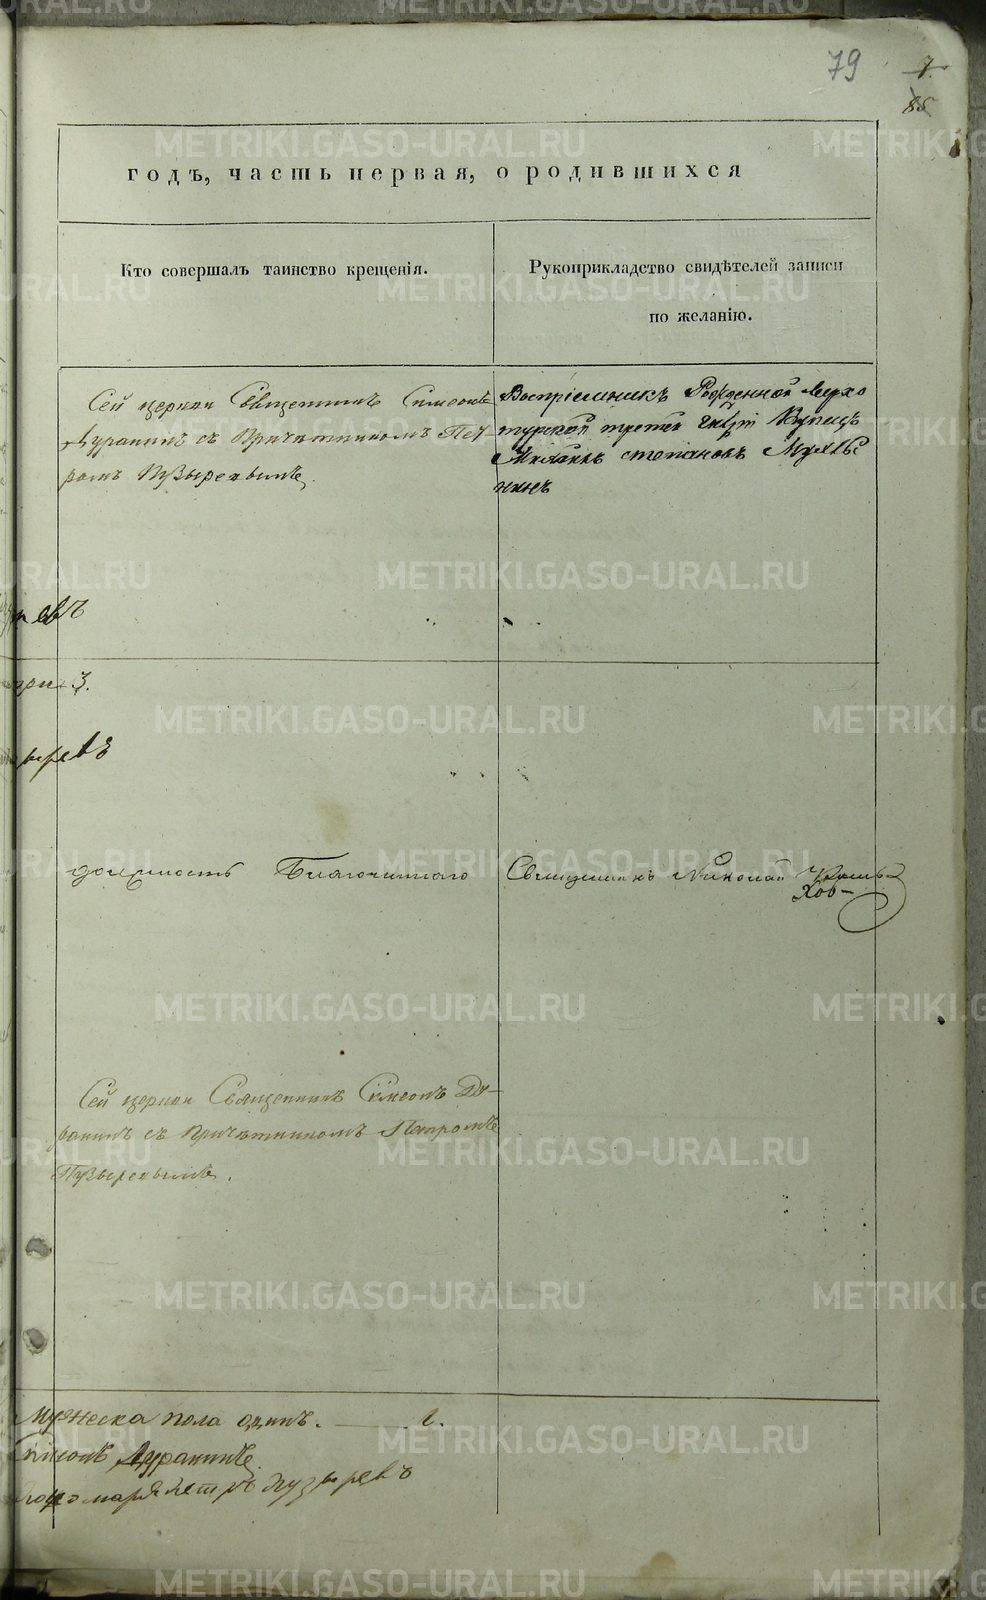 79
7.
85
годъ, часть первая, о родившихся
Кто совершалъ таинство крещенія.
Рукоприкладство свидѣтелей записи
по желанію.
Сей церкви Священникъ Симеонъ
Дуранинъ съ Причетникомъ Пет-
ромъ Пузыревымъ.
Воспріемникъ верхо
турской третей Купецъ
степановъ
нинъ
евъ
3.
ыревъ
должность Благочиннаго
Священникъ Николай
хов-
Сей церкви Священникъ Симеонъ Ду-
ранинъ съ Причетникомъ Петромъ
Пузыревымъ.
Мужеска пола одинъ. 1.
Симеонъ Дуранинъ
Петръ Пузыревъ
METRIKI.GASO-URAL.RU